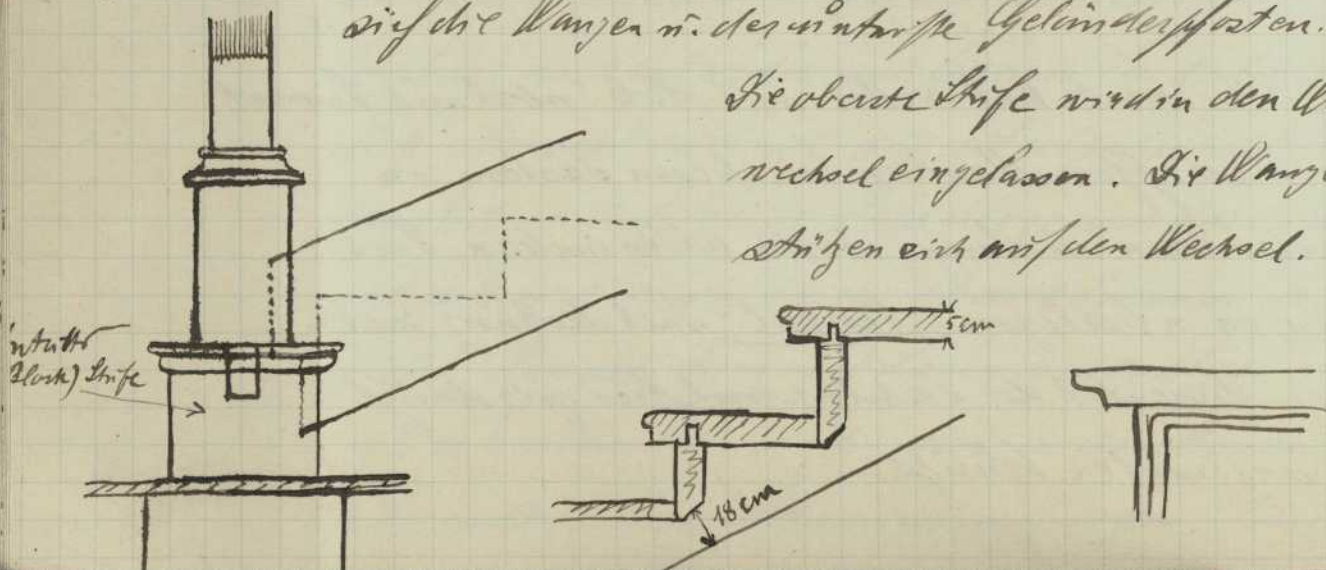 sich die Wangen u. der unterste Geländerpfosten.
Die oberste Stufe wird in den W
wechsel eingelassen. Die Wange
stützen sich auf den Wechsel.
ntritts
Block) Stufe
5 cm
18 cm